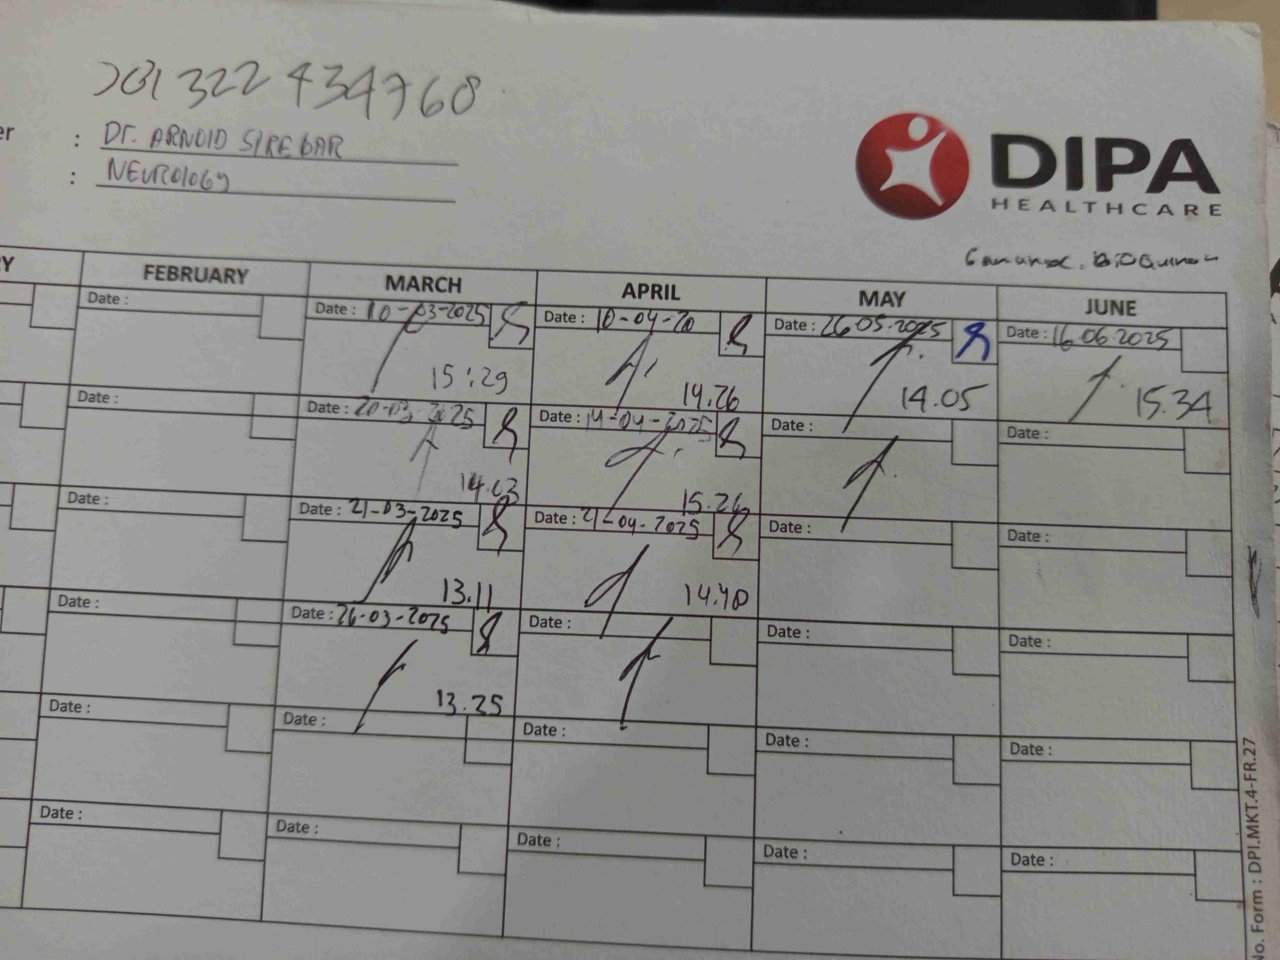 322 434768
er : Dr. ARNOID SIREGAR
: NEUROlOGY
DIPA
HEALTHCARE
Y FEBRUARY MARCH APRIL MAY JUNE
Date : Date : 10-03-2025 Date : 10-04-20 Date : 26.05.2025 Date : 16.06.2025
15:29 14.26 14.05 15.34
Date : Date : 20-03-2025 Date : 14-04-2025 Date : Date :
14.03 15.26
Date : Date : 21-03-2025 Date : 21-04-2025 Date : Date :
13.11 14.40
Date : Date : 26-03-2025 Date : Date : Date :
13.25
Date : Date : Date : Date : Date :
Date : Date : Date : Date : Date :
No. Form : DPI.MKT.4-FR.27